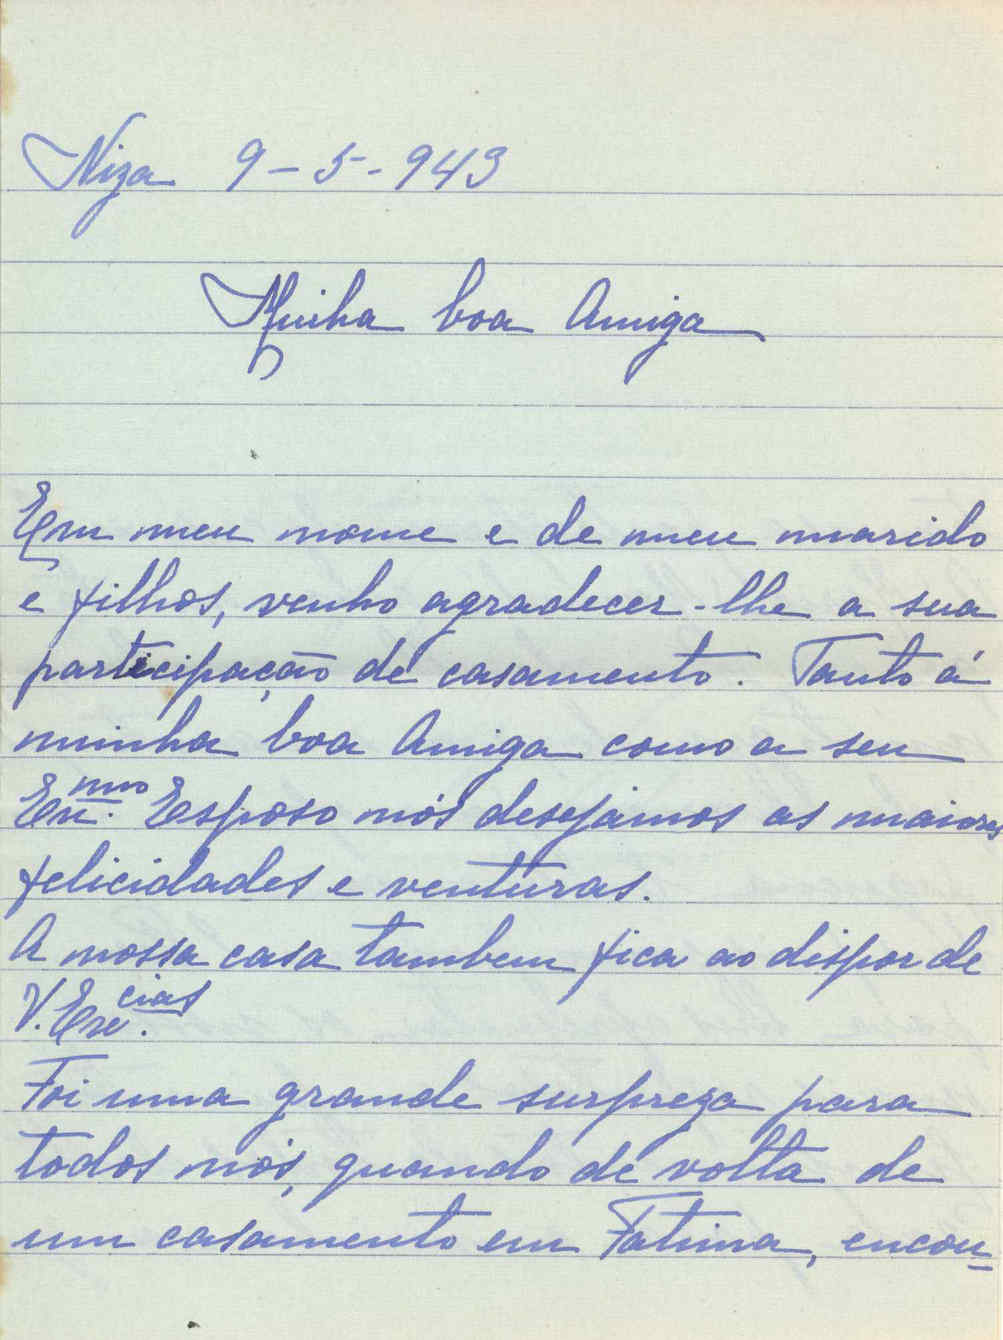 Niza 9-5-943
Minha boa Amiga
Em meu nome e de meu marido
e filhos, venho agradecer-lhe a sua
participação de casamento. Tanto á
minha boa Amiga como a seu
Exmo. Esposo nós desejamos as maiores
felicidades e venturas.
A nossa casa tambem fica ao dispor de
V. Excias.
Foi uma grande surpreza para
todos nós, quando de volta de
um casamento em Fatima, encon-